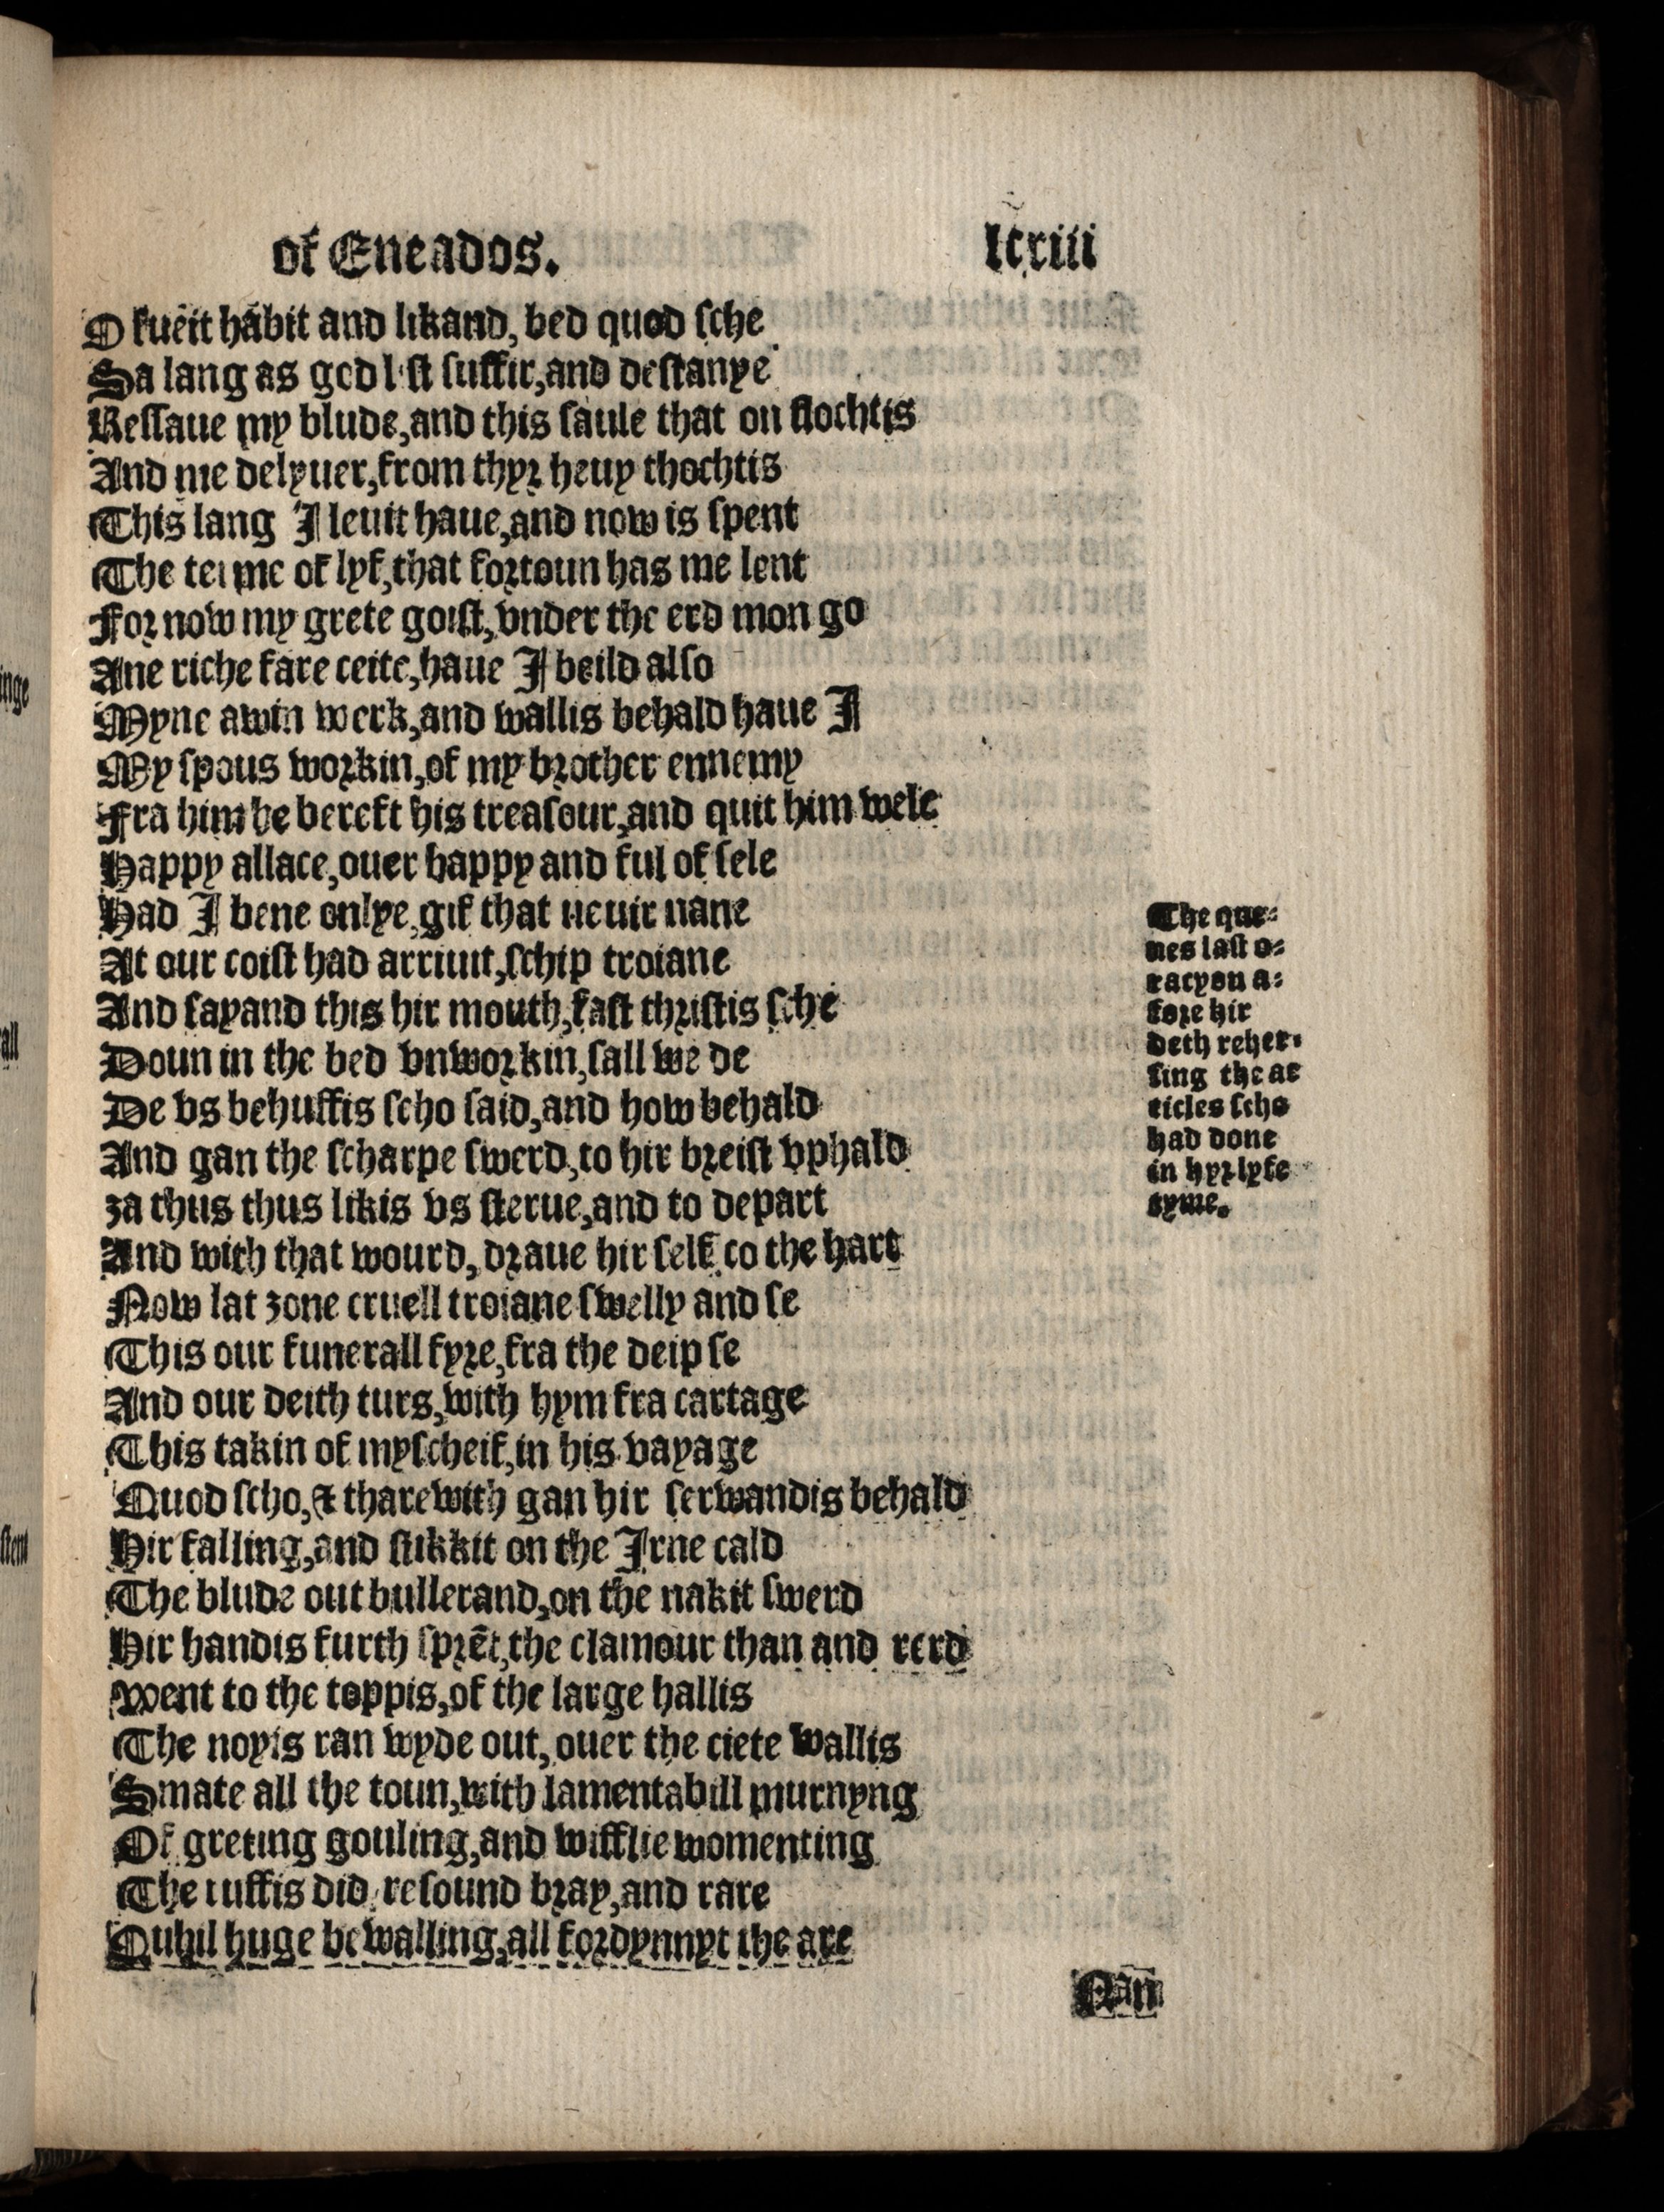 of Eneados.
lxxiii
O sueit habit and likand, bed quod sche
Sa lang as god list suffir, and destanye
Ressaue my blude, and this saule that on flochtis
And me delyuer, from thyr heuy thochtis
This lang I leuit haue, and now is spent
The terme of lyf, that fortoun has me lent
For now my grete goist, vnder the erd mon go
Ane riche fare ceite, haue I beild also
Myne awin werk, and wallis behald haue I
My spous workin, of my brother ennemy
Fra him he bereft his treasour, and quit him wele
Happy allace, ouer happy and ful of sele
Had I bene onlye, gif that neuir nane
At our coist had arriuit, schip troiane
And sayand this hir mouth, fast thristis sche
Doun in the bed vnworkin, sall we de
De vs behuffis scho said, and how behald
And gan the scharpe swerd, to hir breist vphald
ȝa thus thus likis vs sterue, and to depart
And with that wourd, draue hir self to the hart
Now lat ȝone cruell troiane swelly and se
This our funerall fyre, fra the deip se
And our deith turs, with hym fra cartage
This takin of myscheif, in his vayage
Quod scho, & tharewith gan hir serwandis behald
Hir falling, and stikkit on the Irne cald
The blude out bullerand, on the nakit swerd
Hir handis furth sprēt, the clamour than and rerd
Went to the toppis, of the large hallis
The noyis ran wyde out, ouer the ciete wallis
Smate all the toun, with lamentabill murnyng
Of greting gouling, and wifflie womenting
The ruffis did resound bray, and rare
Quhil huge bewalling, all fordynnyt the are
Nan
The que-
nes last o-
racyon a-
fore hir
deth reher-
sing the ar
ticles scho
had done
in hyr lyfe
tyme.